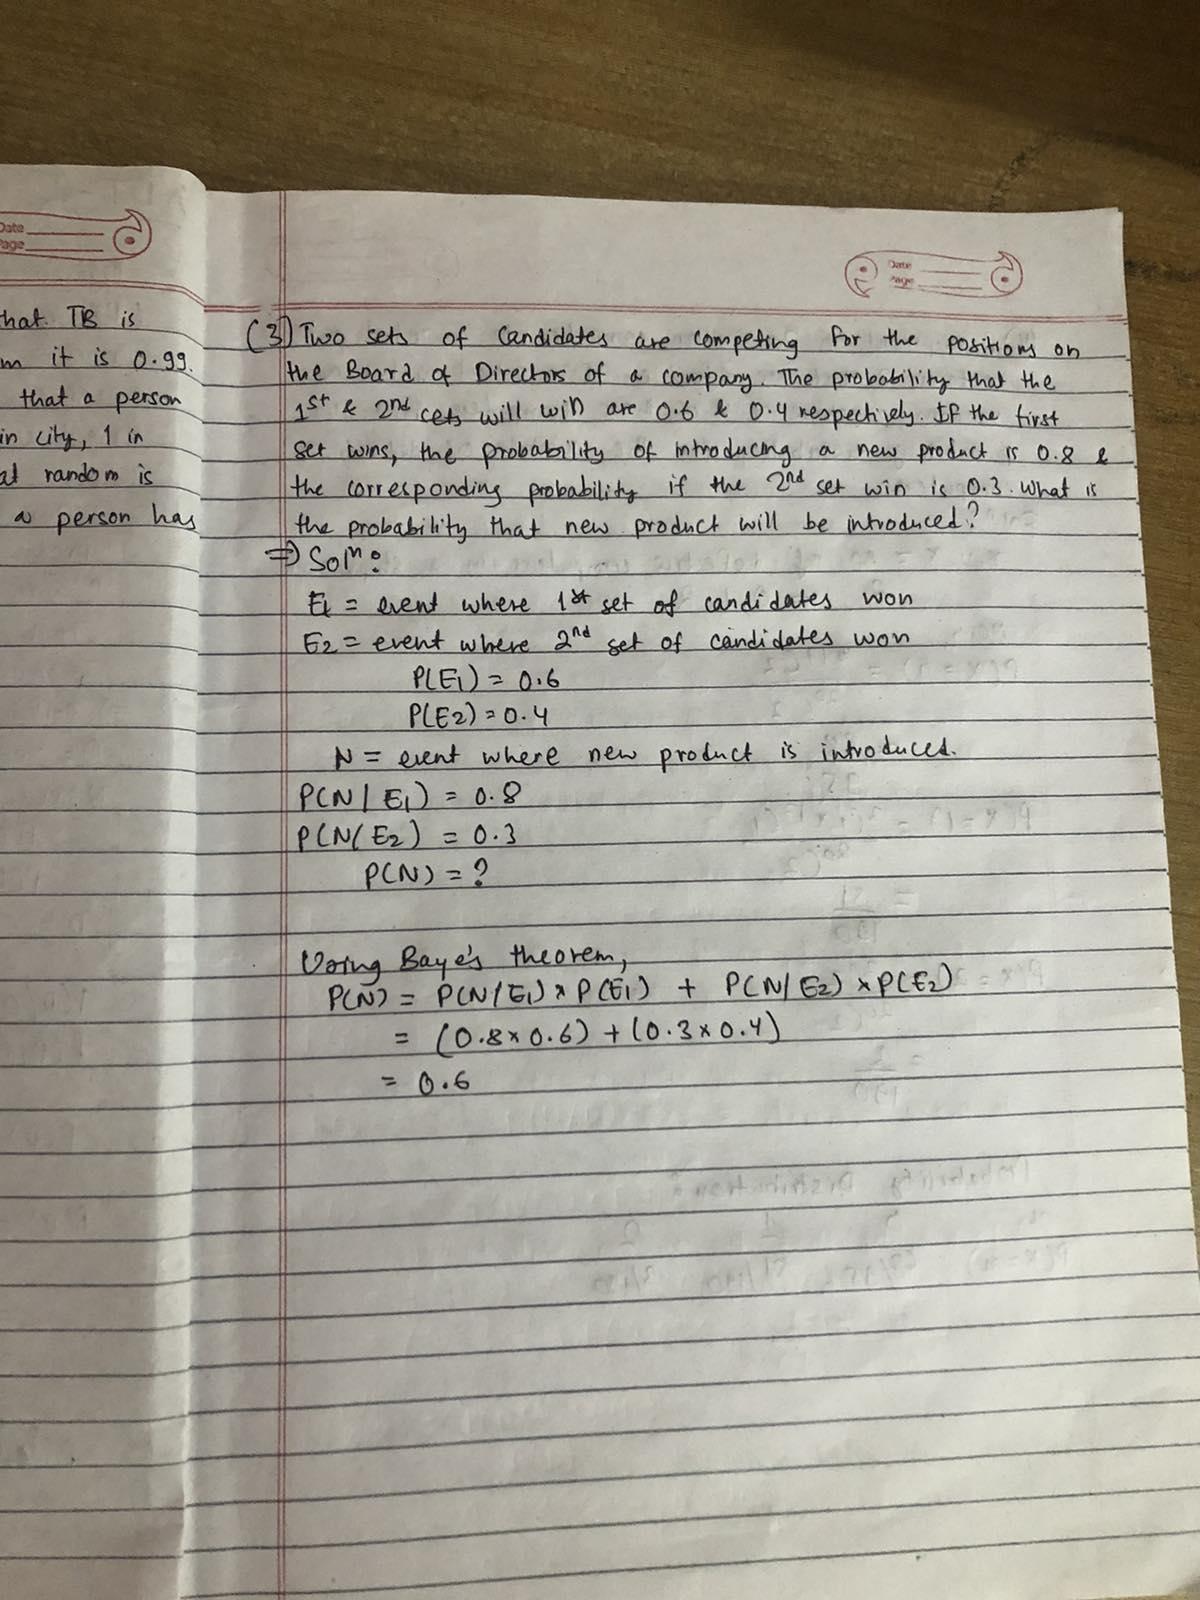 Date
Page
that TB is
m it is 0.99.
that a person
in city, 1 in
at random is
a person has
Date
Page
(3) Two sets of candidates are competing for the positions on
the Board of Directors of a company. The probability that the
1st & 2nd sets will win are 0.6 & 0.4 respectively. If the first
set wins, the probability of introducing a new product is 0.8 &
the corresponding probability if the 2nd set win is 0.3. What is
the probability that new product will be introduced?
⇒ Soln:
E1 = event where 1st set of candidates won
E2 = event where 2nd set of candidates won
P(E1) = 0.6
P(E2) = 0.4
N = event where new product is introduced.
P(N/E1) = 0.8
P(N/E2) = 0.3
P(N) = ?
Using Baye's theorem,
P(N) = P(N/E1) × P(E1) + P(N/E2) × P(E2)
= (0.8 × 0.6) + (0.3 × 0.4)
= 0.6